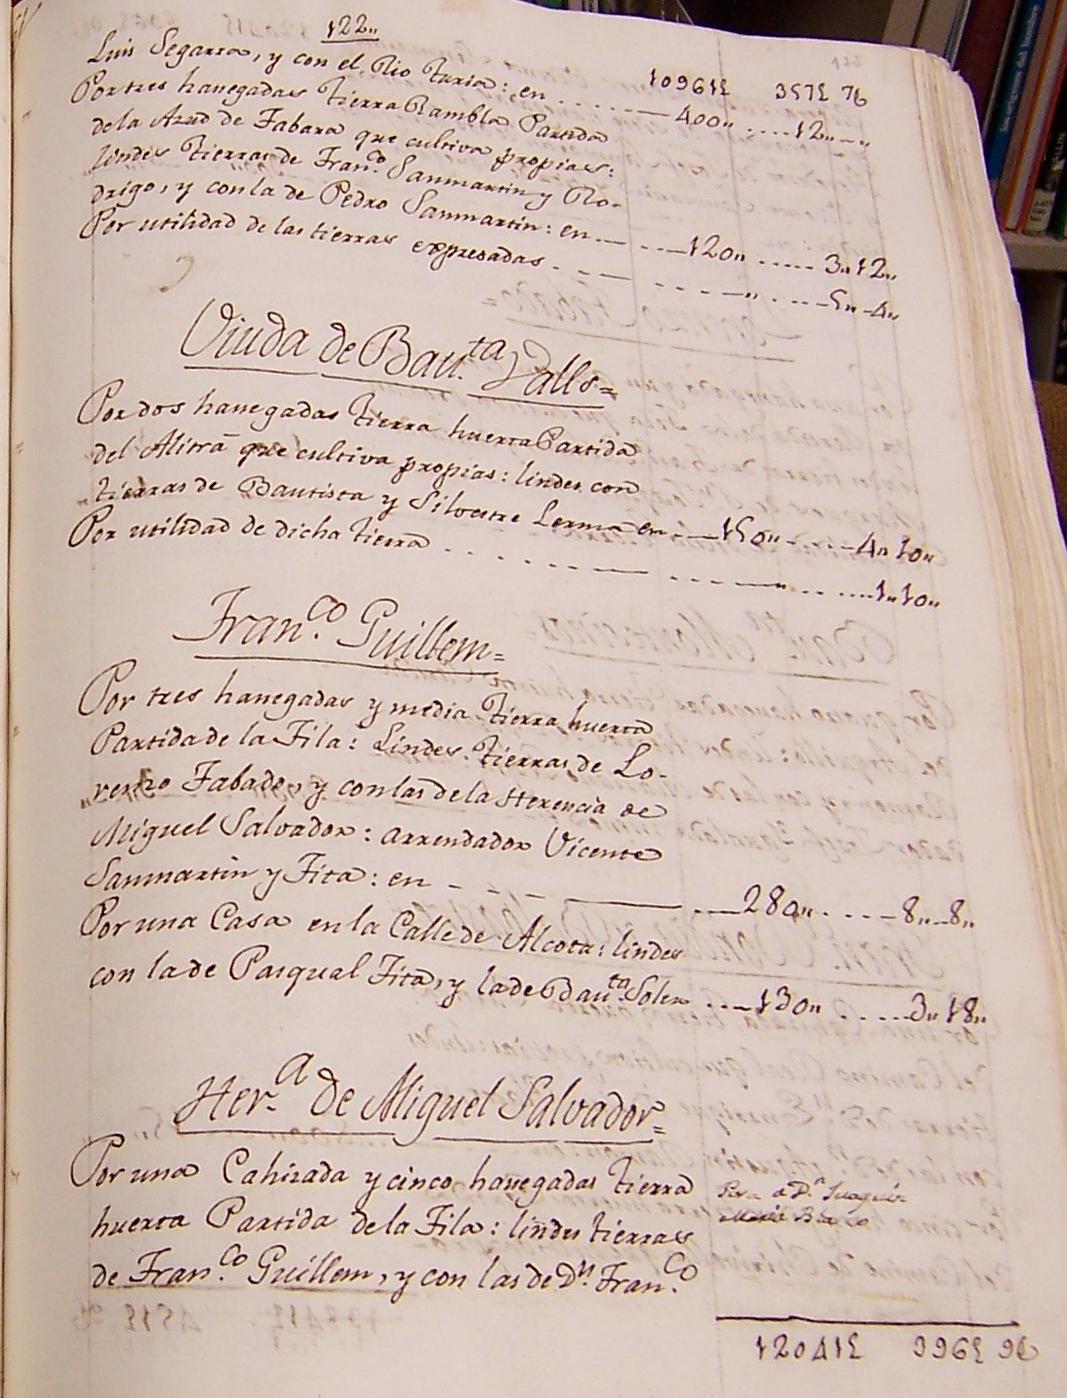 122„
109612 3512 96
Luis Segarra, y con el Rio Turia: en ...... 400„ .... 12„—„
Por tres hanegadas tierra Rambla Partida
de la Azud de Fabara que cultiva propias:
lindes tierras de Fran.co Sanmartin y Ro-
drigo, y con la de Pedro Sanmartin: en ...... 120„ ..... 3„12„
Por utilidad de las tierras expresadas ...... „ .... 5„-4„
Viuda de Bau.ta Valls=
Por dos hanegadas tierra huerta Partida
del Alitrá que cultiva propias: lindes con
tierras de Bautista y Silvestre Lerma en ...... 150„ ..... 4„10„
Por utilidad de dicha tierra ...... „ ..... 1„10„
Fran.co Guillem=
Por tres hanegadas y media tierra huerta
Partida de la Fila: Lindes tierras de Lo-
renzo Fabado, y con las de la Herencia de
Miguel Salvador: arrendador Vicente
Sanmartin y Fita: en ...... 280„ ..... 8„-8„
Por una Casa en la Calle de Alcota: lindes
con la de Pasqual Fita, y la de Bau.ta Soler ...... 130„ ..... 3„18„
Her.a de Miguel Salvador=
Por una Cahizada y cinco hanegadas tierra
huerta Partida de la Fila: lindes tierras
de Fran.co Guillem, y con las de Dn. Fran.co
Pasa a D.n Juaquin
120412